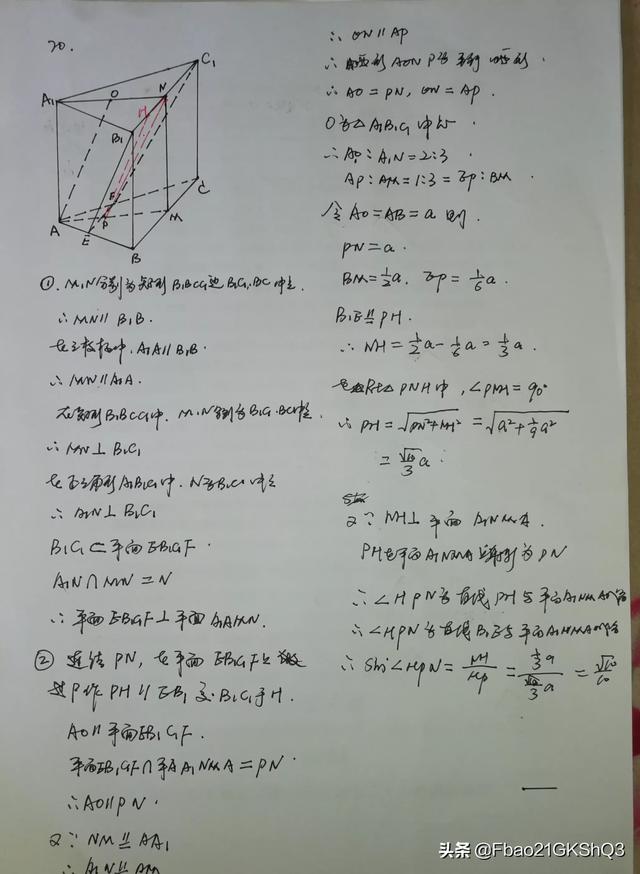 20.
A₁
O
N
C₁
H
B₁
F
A
E
P
M
C
B
①. M.N分别为矩形B₁BCC₁边B₁C₁.BC中点.
∴ MN∥B₁B.
在三棱柱中. A₁A∥B₁B.
∴ MN∥A₁A.
在矩形B₁BCC₁中. M.N分别为B₁C₁.BC中点.
∴ MN⊥B₁C₁
在正三角形A₁B₁C₁中. N为B₁C₁中点
∴ A₁N⊥B₁C₁
B₁C₁⊂平面EB₁C₁F.
A₁N∩MN=N
∴ 平面EB₁C₁F⊥平面A₁AMN.
② 连结PN, 在平面EB₁C₁F上
过P作PH∥EB₁交B₁C₁于H.
AO∥平面EB₁C₁F.
平面EB₁C₁F∩平A₁NMA=PN.
∴AO∥PN.
又∵ NM∥AA₁
∴ A₁N∥AM
∴ ON∥AP
∴ 四边形AONP为平行四边形.
∴ AO=PN, ON=AP.
O为△A₁B₁C₁中心
∴ A₁O:A₁N=2:3.
AP:AM=1:3=EP:BM.
令AO=AB=a则.
PN=a.
BM=½a. EP=1/6 a.
B₁E∥PH.
∴ NH=½a-1/6 a=⅓a.
在Rt△PNH中, ∠PNH=90°
∴ PH=√PN²+NH²=√a²+1/9 a²
=√10/3 a.
又∵ NH⊥平面A₁NMA.
PH在平面A₁NMA上射影为PN
∴ ∠HPN为直线PH与平面A₁NMA的角
∴ ∠HPN为直线B₁E与平面A₁NMA的角
∴ Sin∠HPN=NH/HP=⅓a/√10/3 a=√10/10
头条 @Fbao21GKShQ3